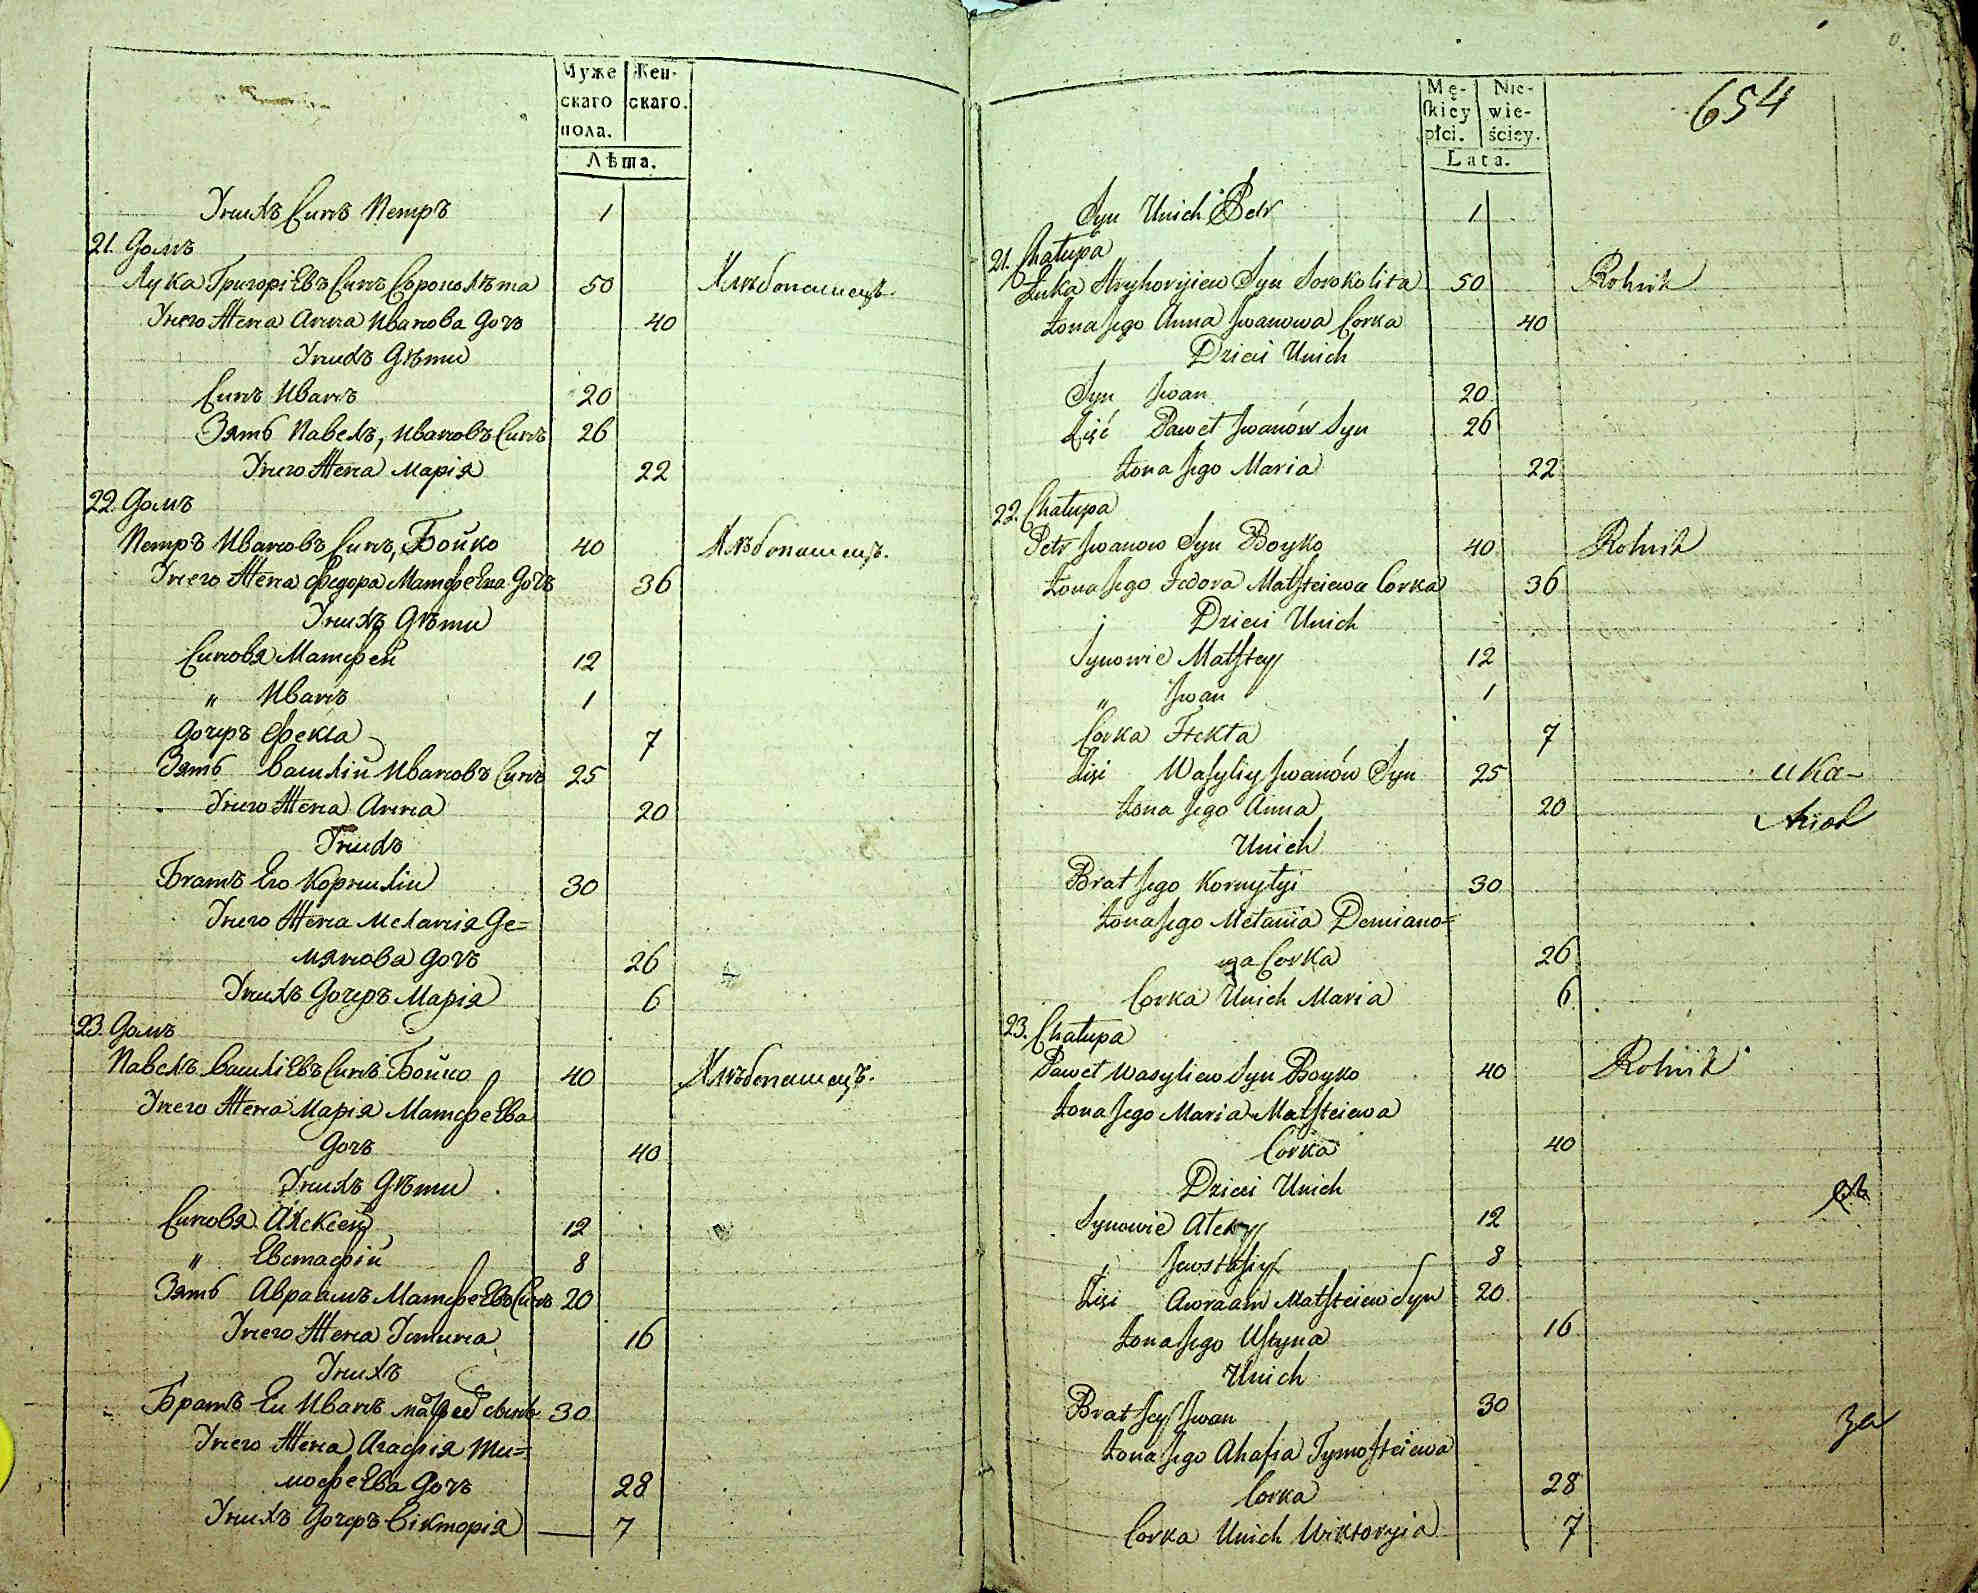 Муже
скаго
пола.
Жен-
скаго.
Лѣта.
Унихъ Синъ Петръ 1
21. Домъ
Лука Григоріевъ Синъ Сороколѣта 50 Хлѣбопашецъ.
Унего Жена Анна Иванова Дочъ 40
Унихъ Дѣти
Синъ Иванъ 20
Зять Павелъ, Ивановъ Синъ 26
Унего Жена Марія 22
22. Домъ
Петръ Ивановъ Синъ, Бойко 40 Хлѣбопашецъ.
Унего Жена Федора Матфеева Дочъ 36
Унихъ Дѣти
Синовя Матфей 12
„ Иванъ 1
Дочеръ Фекла 7
Зять Василій Ивановъ Синъ 25
Унего Жена Анна 20
Унихъ
Братъ Его Корнилій 30
Унего Жена Меланія Де=
мянова Дочъ 26
Унихъ Дочеръ Марія 6
23. Домъ
Павелъ Василіевъ Синъ Бойко 40 Хлѣбопашецъ.
Унего Жена Марія Матфеева
Дочъ 40
Унихъ Дѣти
Синовя Алексей 12
„ Евстафій 8
Зять Авраамъ Матфеевъ Синъ 20
Унего Жена Устина 16
Унихъ
Братъ Ей Иванъ 30
Унего Жена Агафія Ти=
мофеева Дочъ 28
Унихъ Дочеръ Вікторія — 7
Mę-
skiey
płci.
Nie-
wie-
ściey.
Lata.
654
Syn Unich Petr 1
21. Chałupa
Łuka Hryhoryiew Syn Sorokolita 50 Rolnik
Żona Jego Anna Jwanowa Corka 40
Dzieci Unich
Syn Jwan 20
Zięć Paweł Jwanów Syn 26
Żona Jego Maria 22
22. Chałupa
Petr Jwanow Syn Boyko 40 Rolnik
Żona Jego Fedora Matfteiewa Corka 36
Dzieci Unich
Synowie Matftey 12
„ Jwan 1
Corka Ftekła 7
Zięi Wasyliy Jwanów Syn 25
Żona Jego Anna 20
Unich
Brat Jego Kornyłyi 30
Żona Jego Mełania Demiano=
wa Corka 26
Corka Unich Maria 6
23. Chałupa
Paweł Wasyliew Syn Boyko 40 Rolnik
Żona Jego Maria Matfteiewa
Corka 40
Dzieci Unich
Synowie 12
Jewstafiy 8
Zięi Awraam Matfteiew Syn 20
Żona Jego Ustyna 16
Unich
Brat Jey Jwan 30
Żona Jego Ahafia Tymofteiewa
Corka 28
Corka Unich Wiktoryia 7
ика-
за